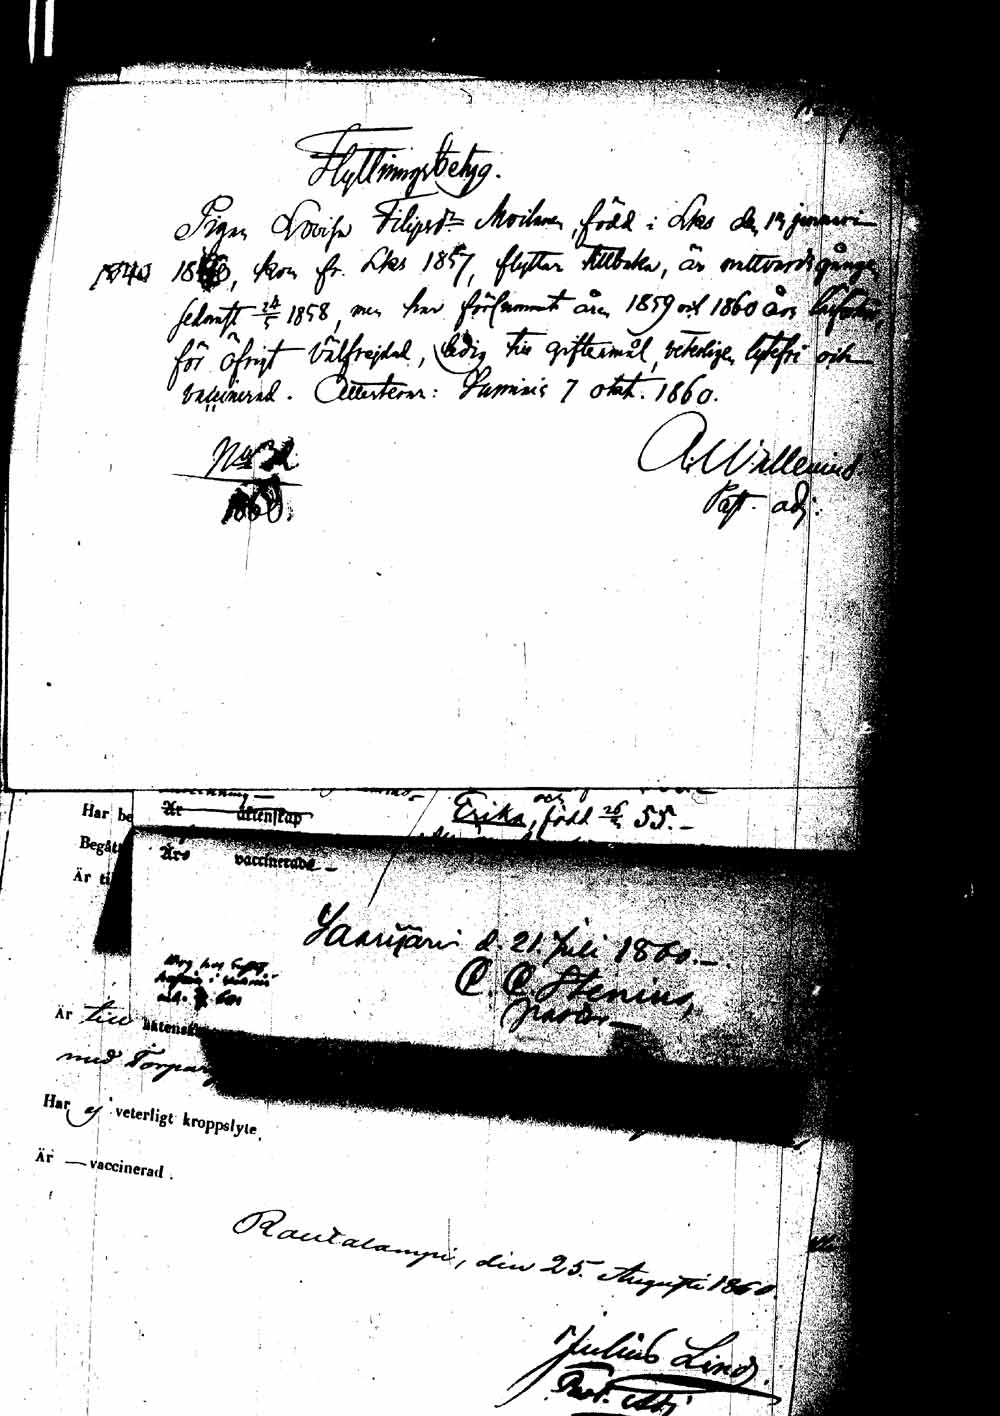 Flyttningsbetyg.
Pigan Lovisa Filipsdr Moilanen, född i Lks den 19 januari
1840 18, kom fr. Lks 1857, flyttar tillbaka, är nattvardsgången
sednast 24/5 1858, men har försummat åren 1859 och 1860 års
för öfrigt välfrejdad, ledig till giftermål, veterligen lytefri och
vaccinerad. Attesterar: 7 okt. 1860.
No 32
1860.
A. Wallenius.
Past. adj.
och
Har be
Är äktenskap
Erika, född 26/ 55.
Begått
Äro vaccinerade
Är ti
d. 21. Juli 1860.
C. C. Stenius,
pastor
Är till äktensk
med Torpar
Har ej veterligt kroppslyte.
Är vaccinerad.
Rautalampi, den 25. Augusti 1860.
Julius Lind.
Past. Adj.